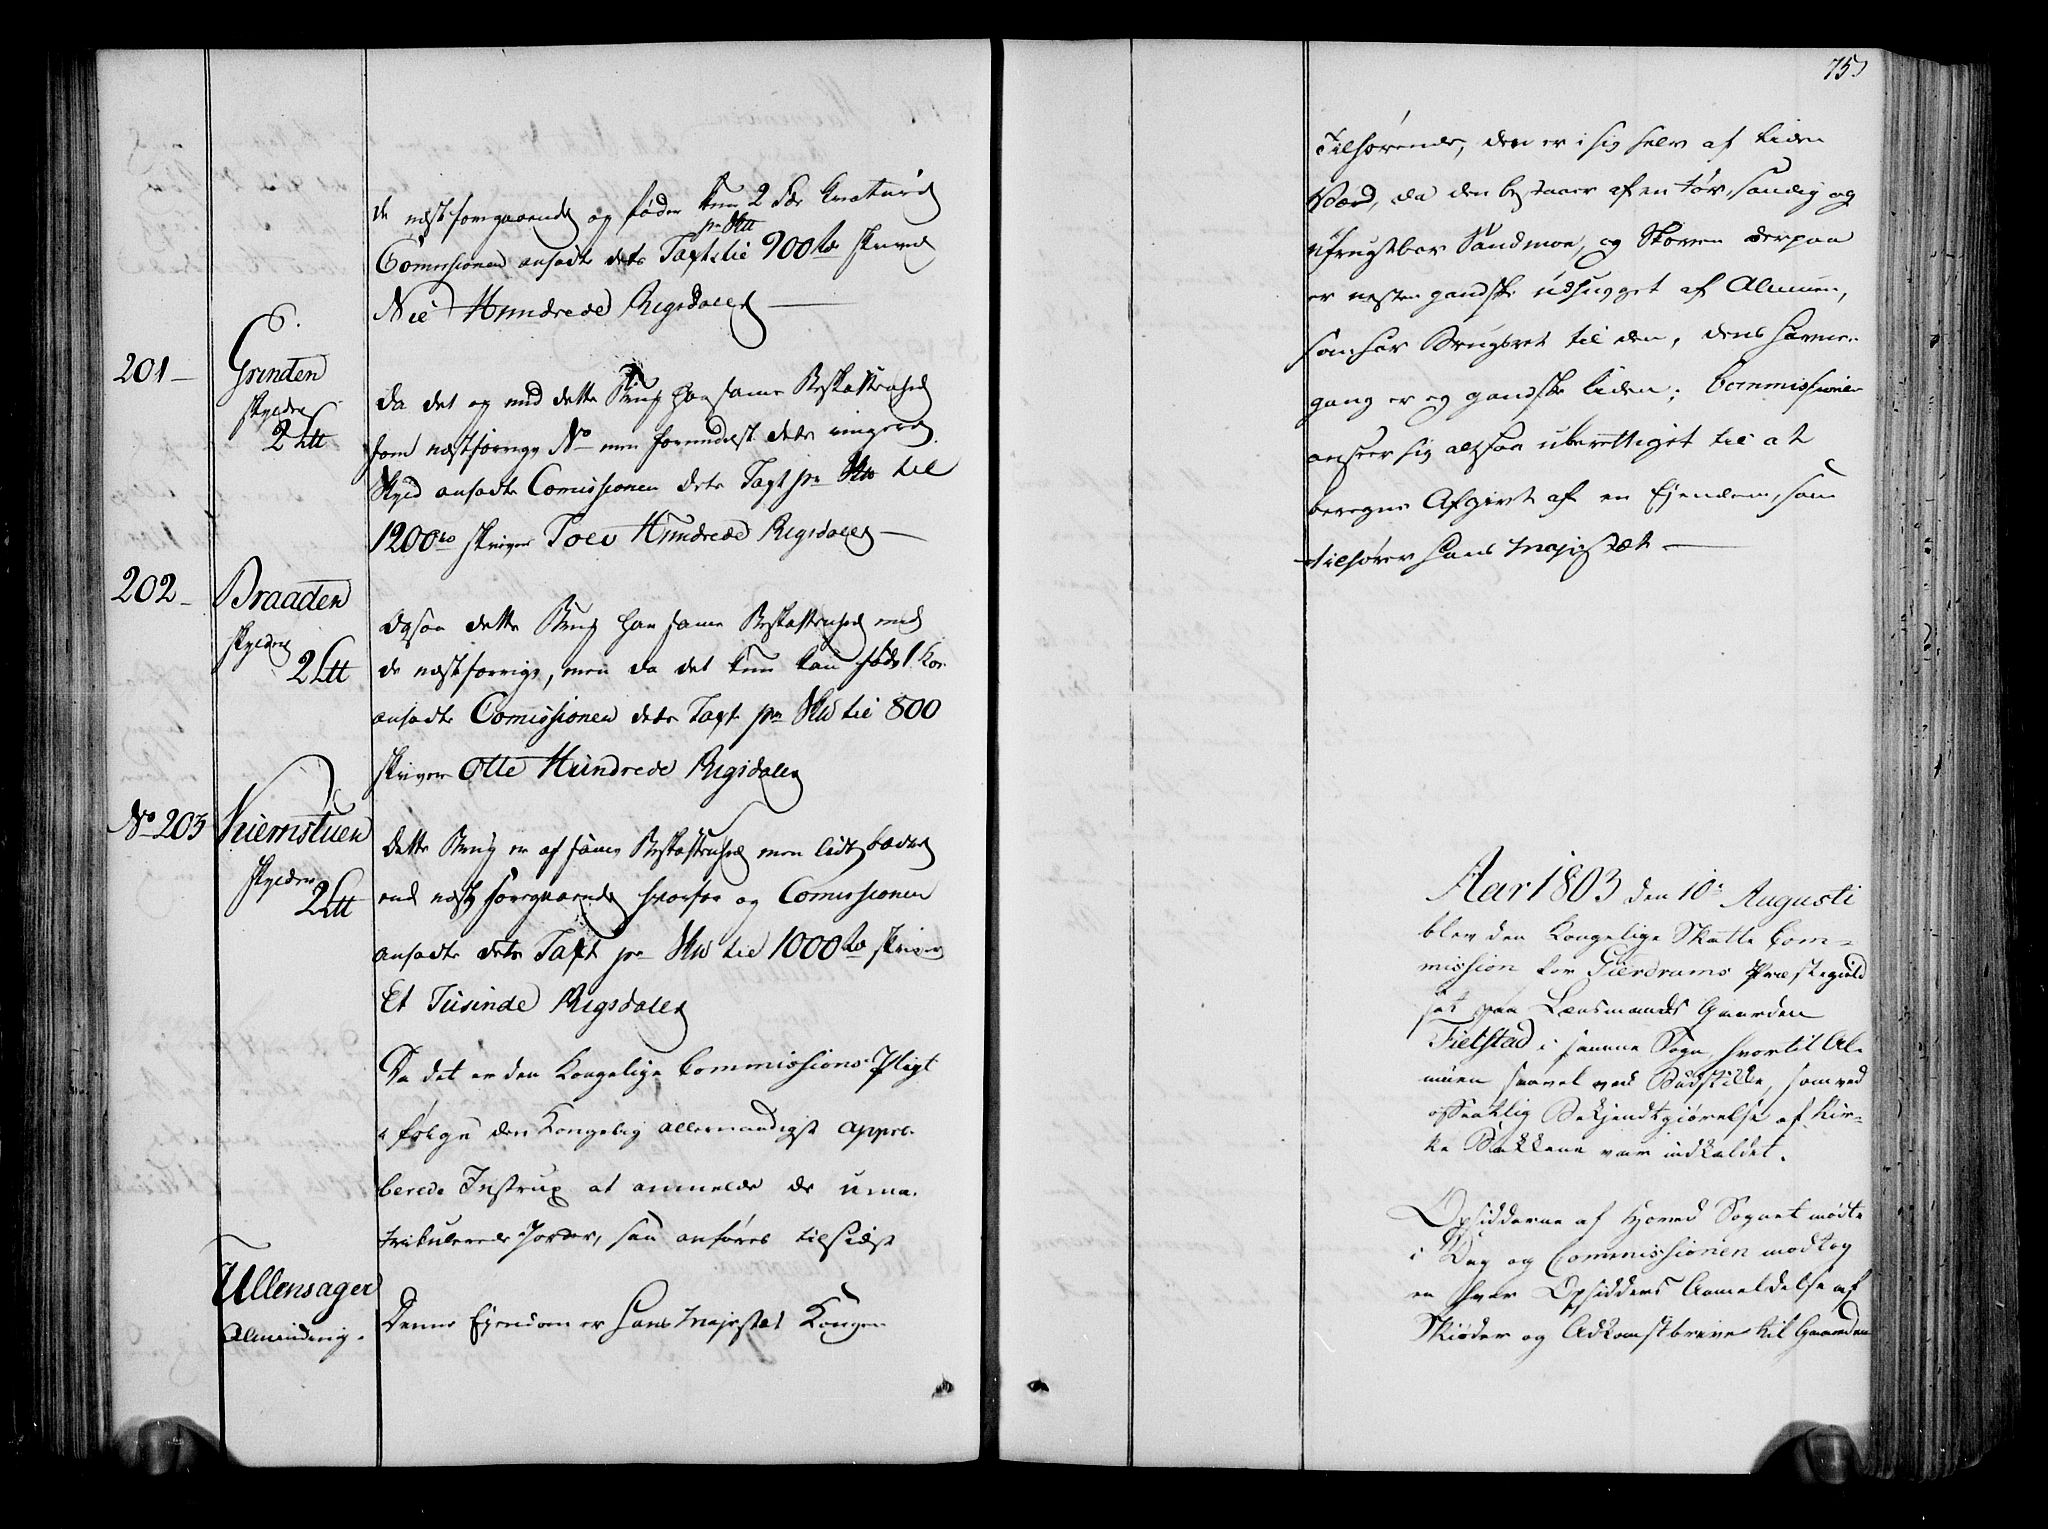 de næstforegaaende og föder kun 2 Sæe Creaturer
pr Sktt
Comissionen ansadte dets Taxt til 900 rd skriver
Nie Hundrede Rigsdaler
201 Grinden
skylder
2 Ltt
Da det og med dette Brug har samme Beskaffenhed
som næstforrige No men formedelst dets ringere
Skyld ansadte Comissionen dets Taxt pr Sktt til
1200 rd skriver Tolv Hundrede Rigsdaler
202 Braaden
skylder
2 Ltt
Ogsaa dette Brug har samme Beskaffenhed med
de næstforrige, men da det kun kan föde 1 Koe
ansadte Comissionen dets Taxt pr Sktt til 800
skriver Otte Hundrede Rigsdaler
No 203 Kiernstuen
skylder
2 Ltt
Dette Brug er af samme Beskaffenhed men lidt bædre
end næst foregaaende hvorfor og Comissionen
ansadte dets Taxt pr Sktt til 1000 rd skriver
Et Tusinde Rigsdaler
Da det er den Kongelige Commissions Pligt
i fölge den Kongelig allernaadigst appro-
berede Instrux at anmelde de uma-
trikulerede Jorder, saa anföres tilsidst
Ullensager
Almending.
Denne Ejendom er Hans Majestæt Kongen
75
Tilhörende, den er i sig selv af liden
Værd, da den bestaaer af en tör, sandig og
ufrugtbar Sandmoe, og Skoven derpaa
er nesten gandske udhugget af Almuen,
som har Brugsret til den, dens Havne-
gang er og gandske liden; Commissionen
anseer sig altsaa uberettiget til at
beregne Afgivt af en Ejendom, som
tilhörer Hans Majestæt
Aar 1803 den 10de Augusti
blev den Kongelige Skatte Com-
mission for Gierdrums Præstegield
sat paa Lænsmands Gaarden
Fielstad i samme Sogn, hvortil Al-
muen saavel ved Budstikke, som ved
offentlig Bekjendtgiörelse af Kir-
ke Bakkene var indkaldet.
Opsidderne af Hoved Sognet mödte
i Dag og Commissionen modtog
en hver Opsidders Anmeldelse af
Skiöder og Adkomstbreve til Gaarden